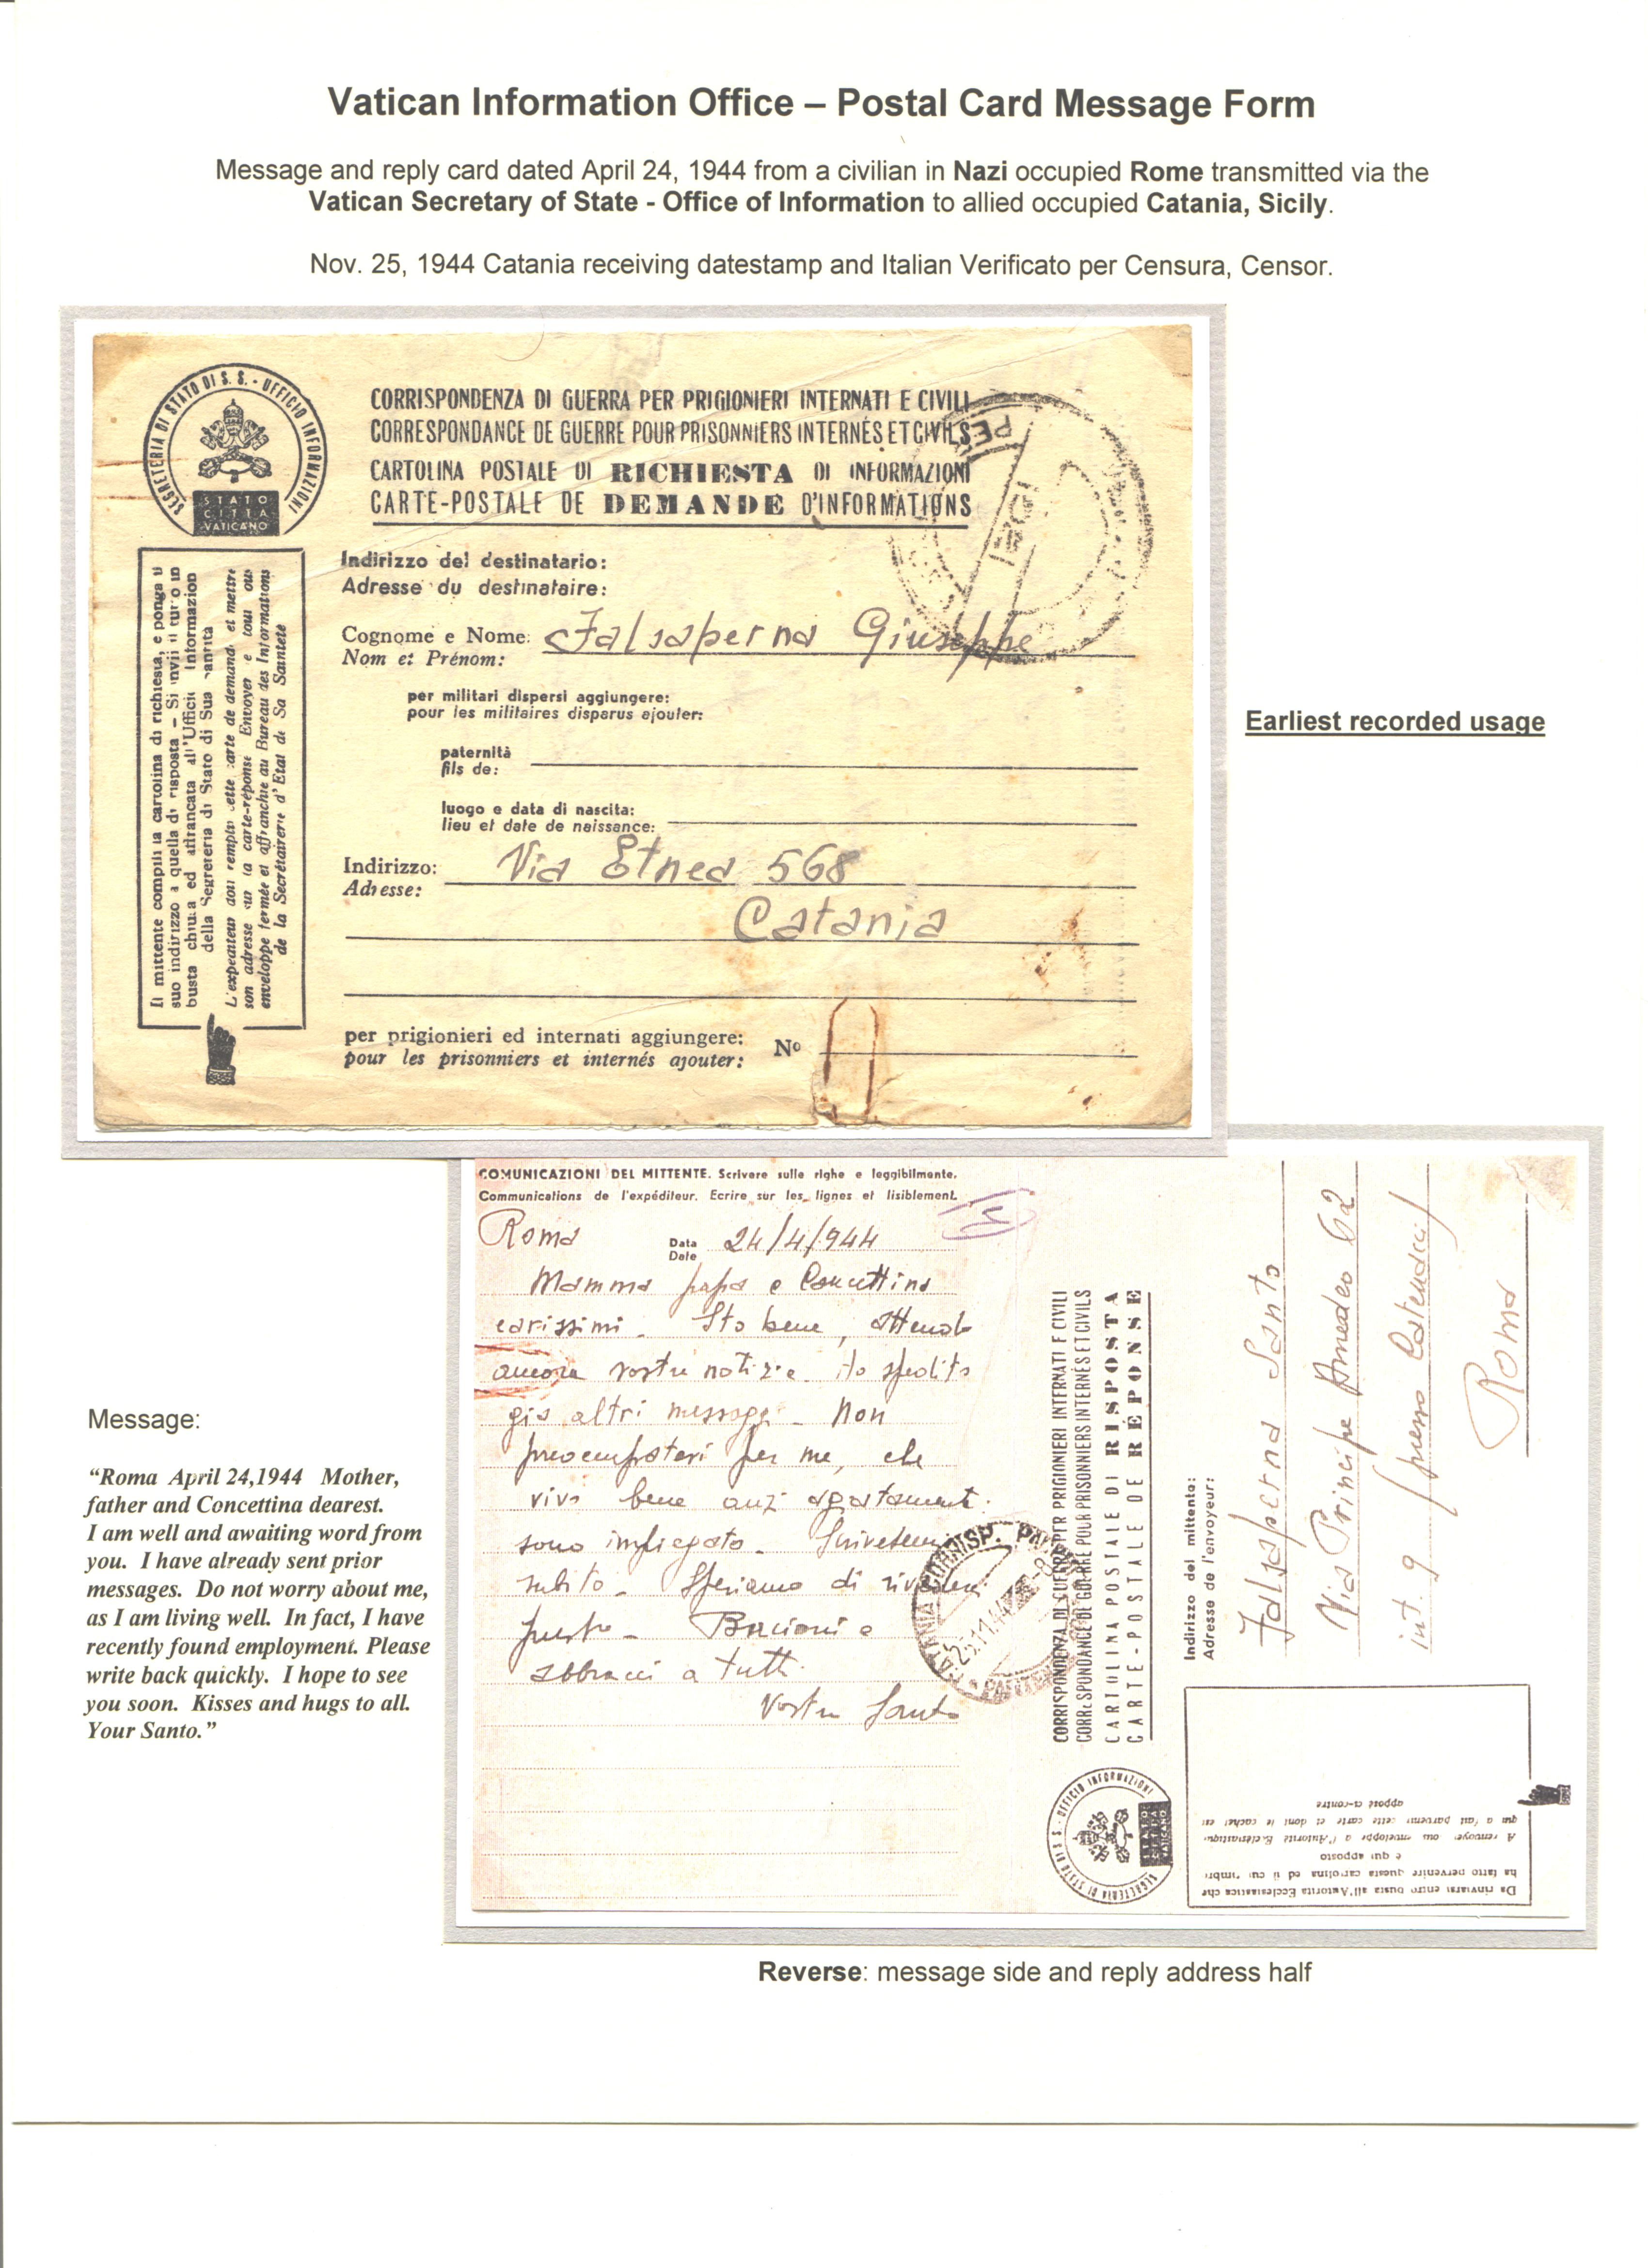 Vatican Information Office – Postal Card Message Form
Message and reply card dated April 24, 1944 from a civilian in Nazi occupied Rome transmitted via the
Vatican Secretary of State - Office of Information to allied occupied Catania, Sicily.
Nov. 25, 1944 Catania receiving datestamp and Italian Verificato per Censura, Censor.
SEGRETERIA DI STATO DI S. S. - UFFICIO INFORMAZIONI
STATO
CITTA
VATICANO
CORRISPONDENZA DI GUERRA PER PRIGIONIERI INTERNATI E CIVILI
CORRESPONDANCE DE GUERRE POUR PRISONNIERS INTERNÉS ET CIVILS
CARTOLINA POSTALE DI RICHIESTA DI INFORMAZIONI
CARTE-POSTALE DE DEMANDE D'INFORMATIONS
PER
Il mittente compili la cartolina di richiesta, e ponga il
suo indirizzo a quella di risposta – Si invii il tutto in
busta chiusa ed affrancata all'Ufficio Informazioni
della Segreteria di Stato di Sua Santità
L'expéditeur doit remplir cette carte de demande et mettre
son adresse sur la carte-réponse Envoyer le tout sous
enveloppe fermée et affranchie au Bureau des Informations
de la Secrétairerie d'Etat de Sa Sainteté
Indirizzo del destinatario:
Adresse du destinataire:
Cognome e Nome: Falsaperna Giuseppe
Nom et Prénom:
per militari dispersi aggiungere:
pour les militaires disparus ajouter:
paternità
fils de:
luogo e data di nascita:
lieu et date de naissance:
Indirizzo: Via Etnea 568
Adresse:
Catania
per prigionieri ed internati aggiungere: Nº
pour les prisonniers et internés ajouter:
Earliest recorded usage
COMUNICAZIONI DEL MITTENTE. Scrivere sulle righe e leggibilmente.
Communications de l'expéditeur. Ecrire sur les lignes et lisiblement.
Roma Data 24/4/944
Date
Mamma papa e Concettina
carissimi. Sto bene, attendo
ancora vostre notizie. Ho spedito
già altri messaggi. Non
preoccupatevi per me, che
vivo bene anzi
sono impiegato. Scrivetemi
subito. Speriamo di rivederci
presto. Bacioni e
abbracci a tutti.
Vostro Santo
CATANIA CORRISP. PACCHI
25.11.44
CORRISPONDENZA DI GUERRE PER PRIGIONIERI INTERNATI E CIVILI
CORRESPONDANCE DE GUERRE POUR PRISONNIERS INTERNÉS ET CIVILS
CARTOLINA POSTALE DI RISPOSTA
CARTE-POSTALE DE RÉPONSE
SEGRETERIA DI STATO DI S. S. - UFFICIO INFORMAZIONI
STATO
CITTA
VATICANO
Indirizzo del mittente:
Adresse de l'envoyeur:
Falsaperna Santo
Via Principe Amedeo 62
int. 9 (presso
Roma
Da rinviarsi entro busta all'Autorità Ecclesiastica che
ha fatto pervenire questa cartolina ed il cui timbro
è qui apposto
A renvoyer sous enveloppe a l'Autorité Ecclésiastique
qui a fait parvenir cette carte et dont le cachet est
apposé ci-contre
Message:
“Roma April 24,1944 Mother,
father and Concettina dearest.
I am well and awaiting word from
you. I have already sent prior
messages. Do not worry about me,
as I am living well. In fact, I have
recently found employment. Please
write back quickly. I hope to see
you soon. Kisses and hugs to all.
Your Santo.”
Reverse: message side and reply address half